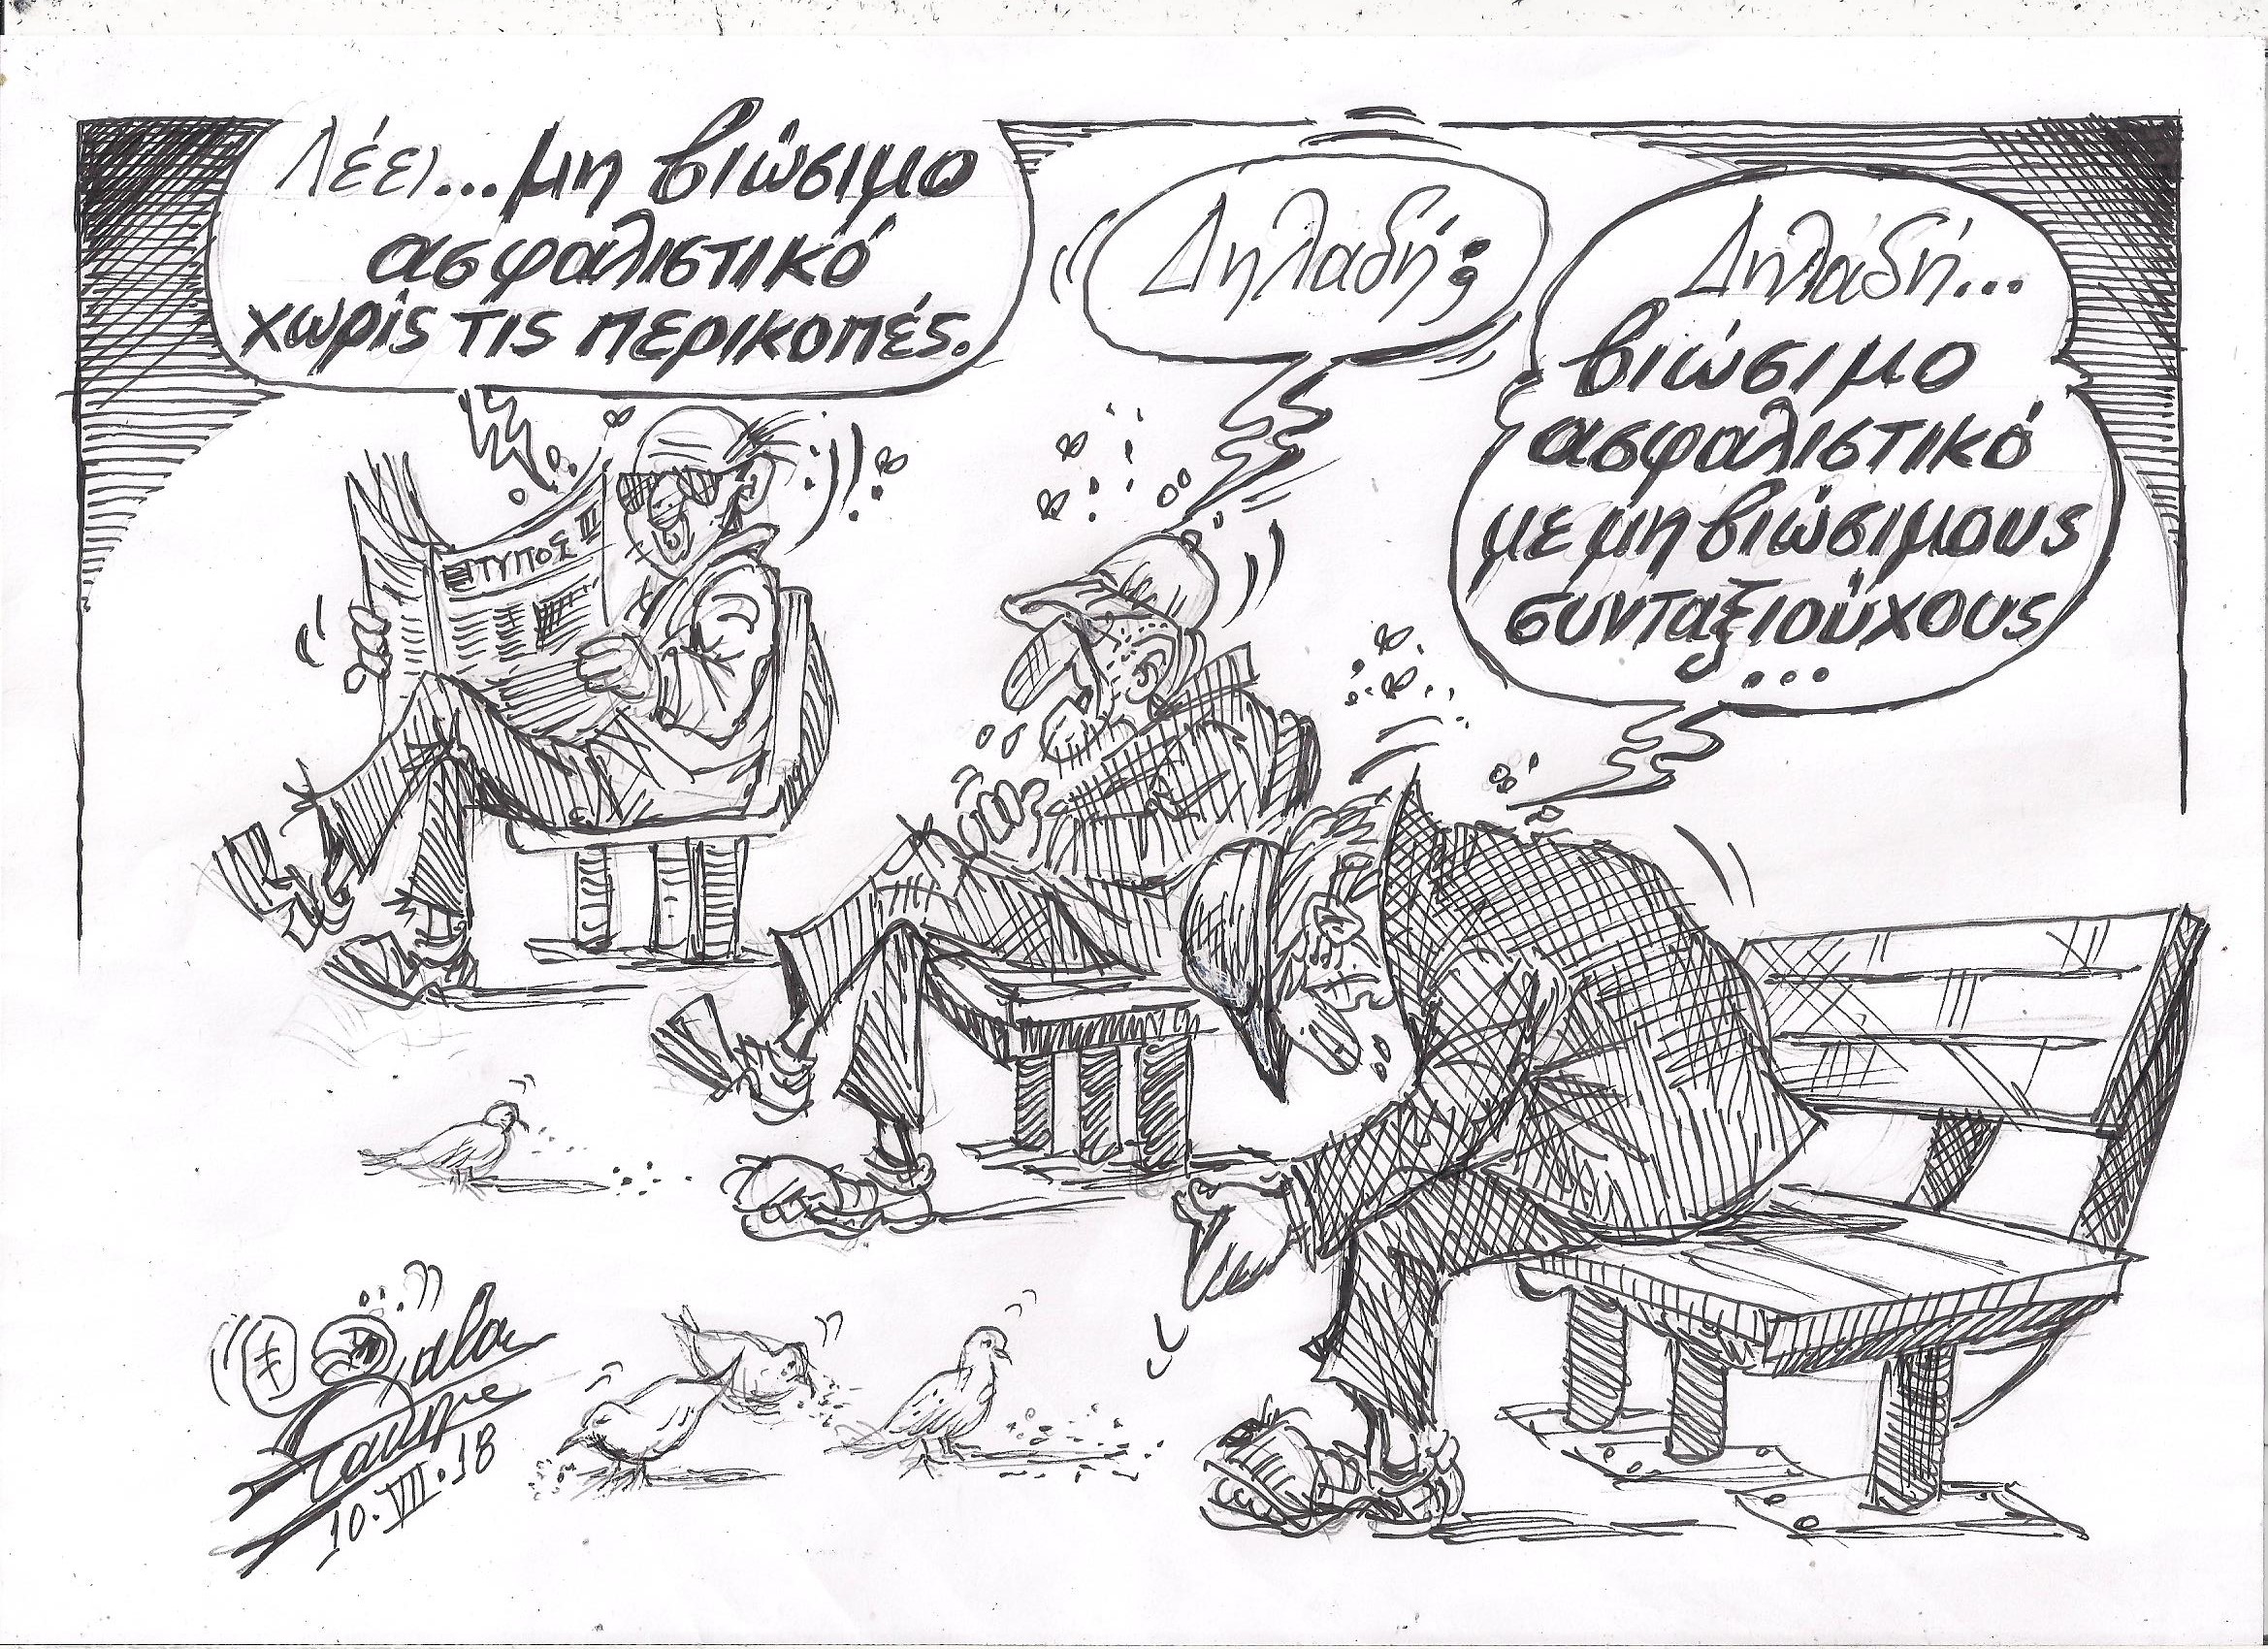 Λέει... μη βιώσιμο
ασφαλιστικό
χωρίς τις περικοπές.
Δηλαδή;
Δηλαδή...
βιώσιμο
ασφαλιστικό
με μη βιώσιμους
συνταξιούχους
...
ΤΥΠΟΣ
10·VII·18